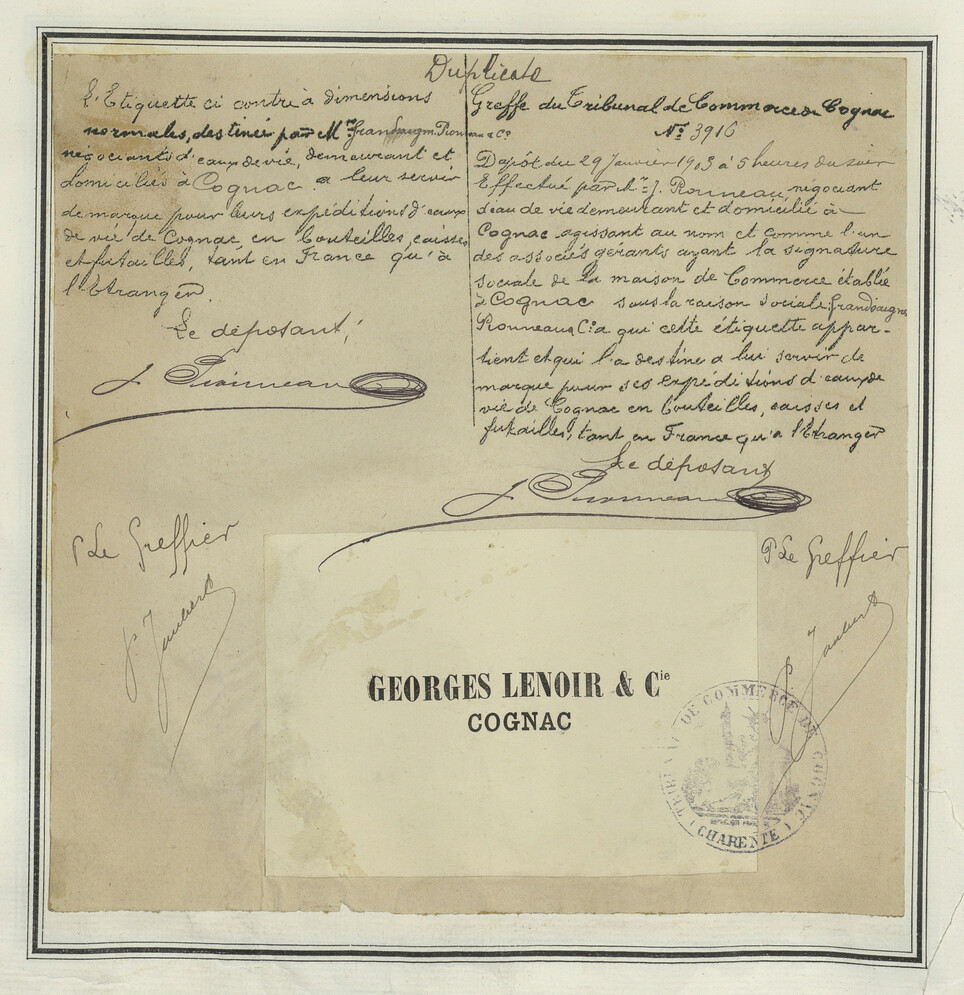 Duplicata
L'Etiquette ci contre à dimensions
normales, destinée par Mrs Grandsaigne Pionneau & Co
négociants d'eaux de vie, demeurant et
domiciliés à Cognac a leur servir
de marque pour leurs expéditions d'eaux
de vie de Cognac, en bouteilles, caisses
et futailles, tant en France qu'à
l'Etranger.
Le déposant,
J. Pionneau
Greffe du Tribunal de Commerce de Cognac
No 3916
Dépôt du 29 Janvier 1903 à 5 heures du soir
Effectué par Mr J. Pionneau négociant
d'eau de vie demeurant et domicilié à
Cognac agissant au nom et comme l'un
des associés gérants ayant la signature
sociale de la maison de Commerce établie
à Cognac sous la raison sociale: Grandsaigne
Pionneau & Co a qui cette étiquette appar-
tient et qui l'a destine a lui servir de
marque pour ses expéditions d'eaux de
vie de Cognac en bouteilles, caisses et
futailles, tant en France qu'a l'Etranger
Le déposant
J. Pionneau
P Le Greffier
P. Jaubert
P Le Greffier
P. Jaubert
GEORGES LENOIR & Cie
COGNAC
TRIBUNAL DE COMMERCE DE COGNAC
(CHARENTE)